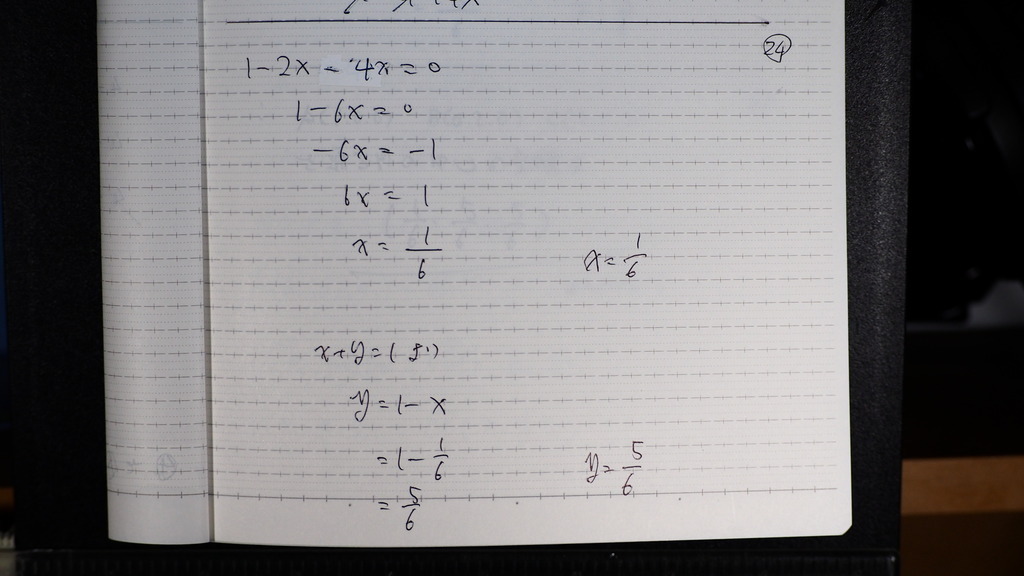 24
1-2x-4x=0
1-6x=0
-6x=-1
6x=1
x=1/6
x=1/6
x+y=1 より
y=1-x
=1-1/6
y=5/6
=5/6